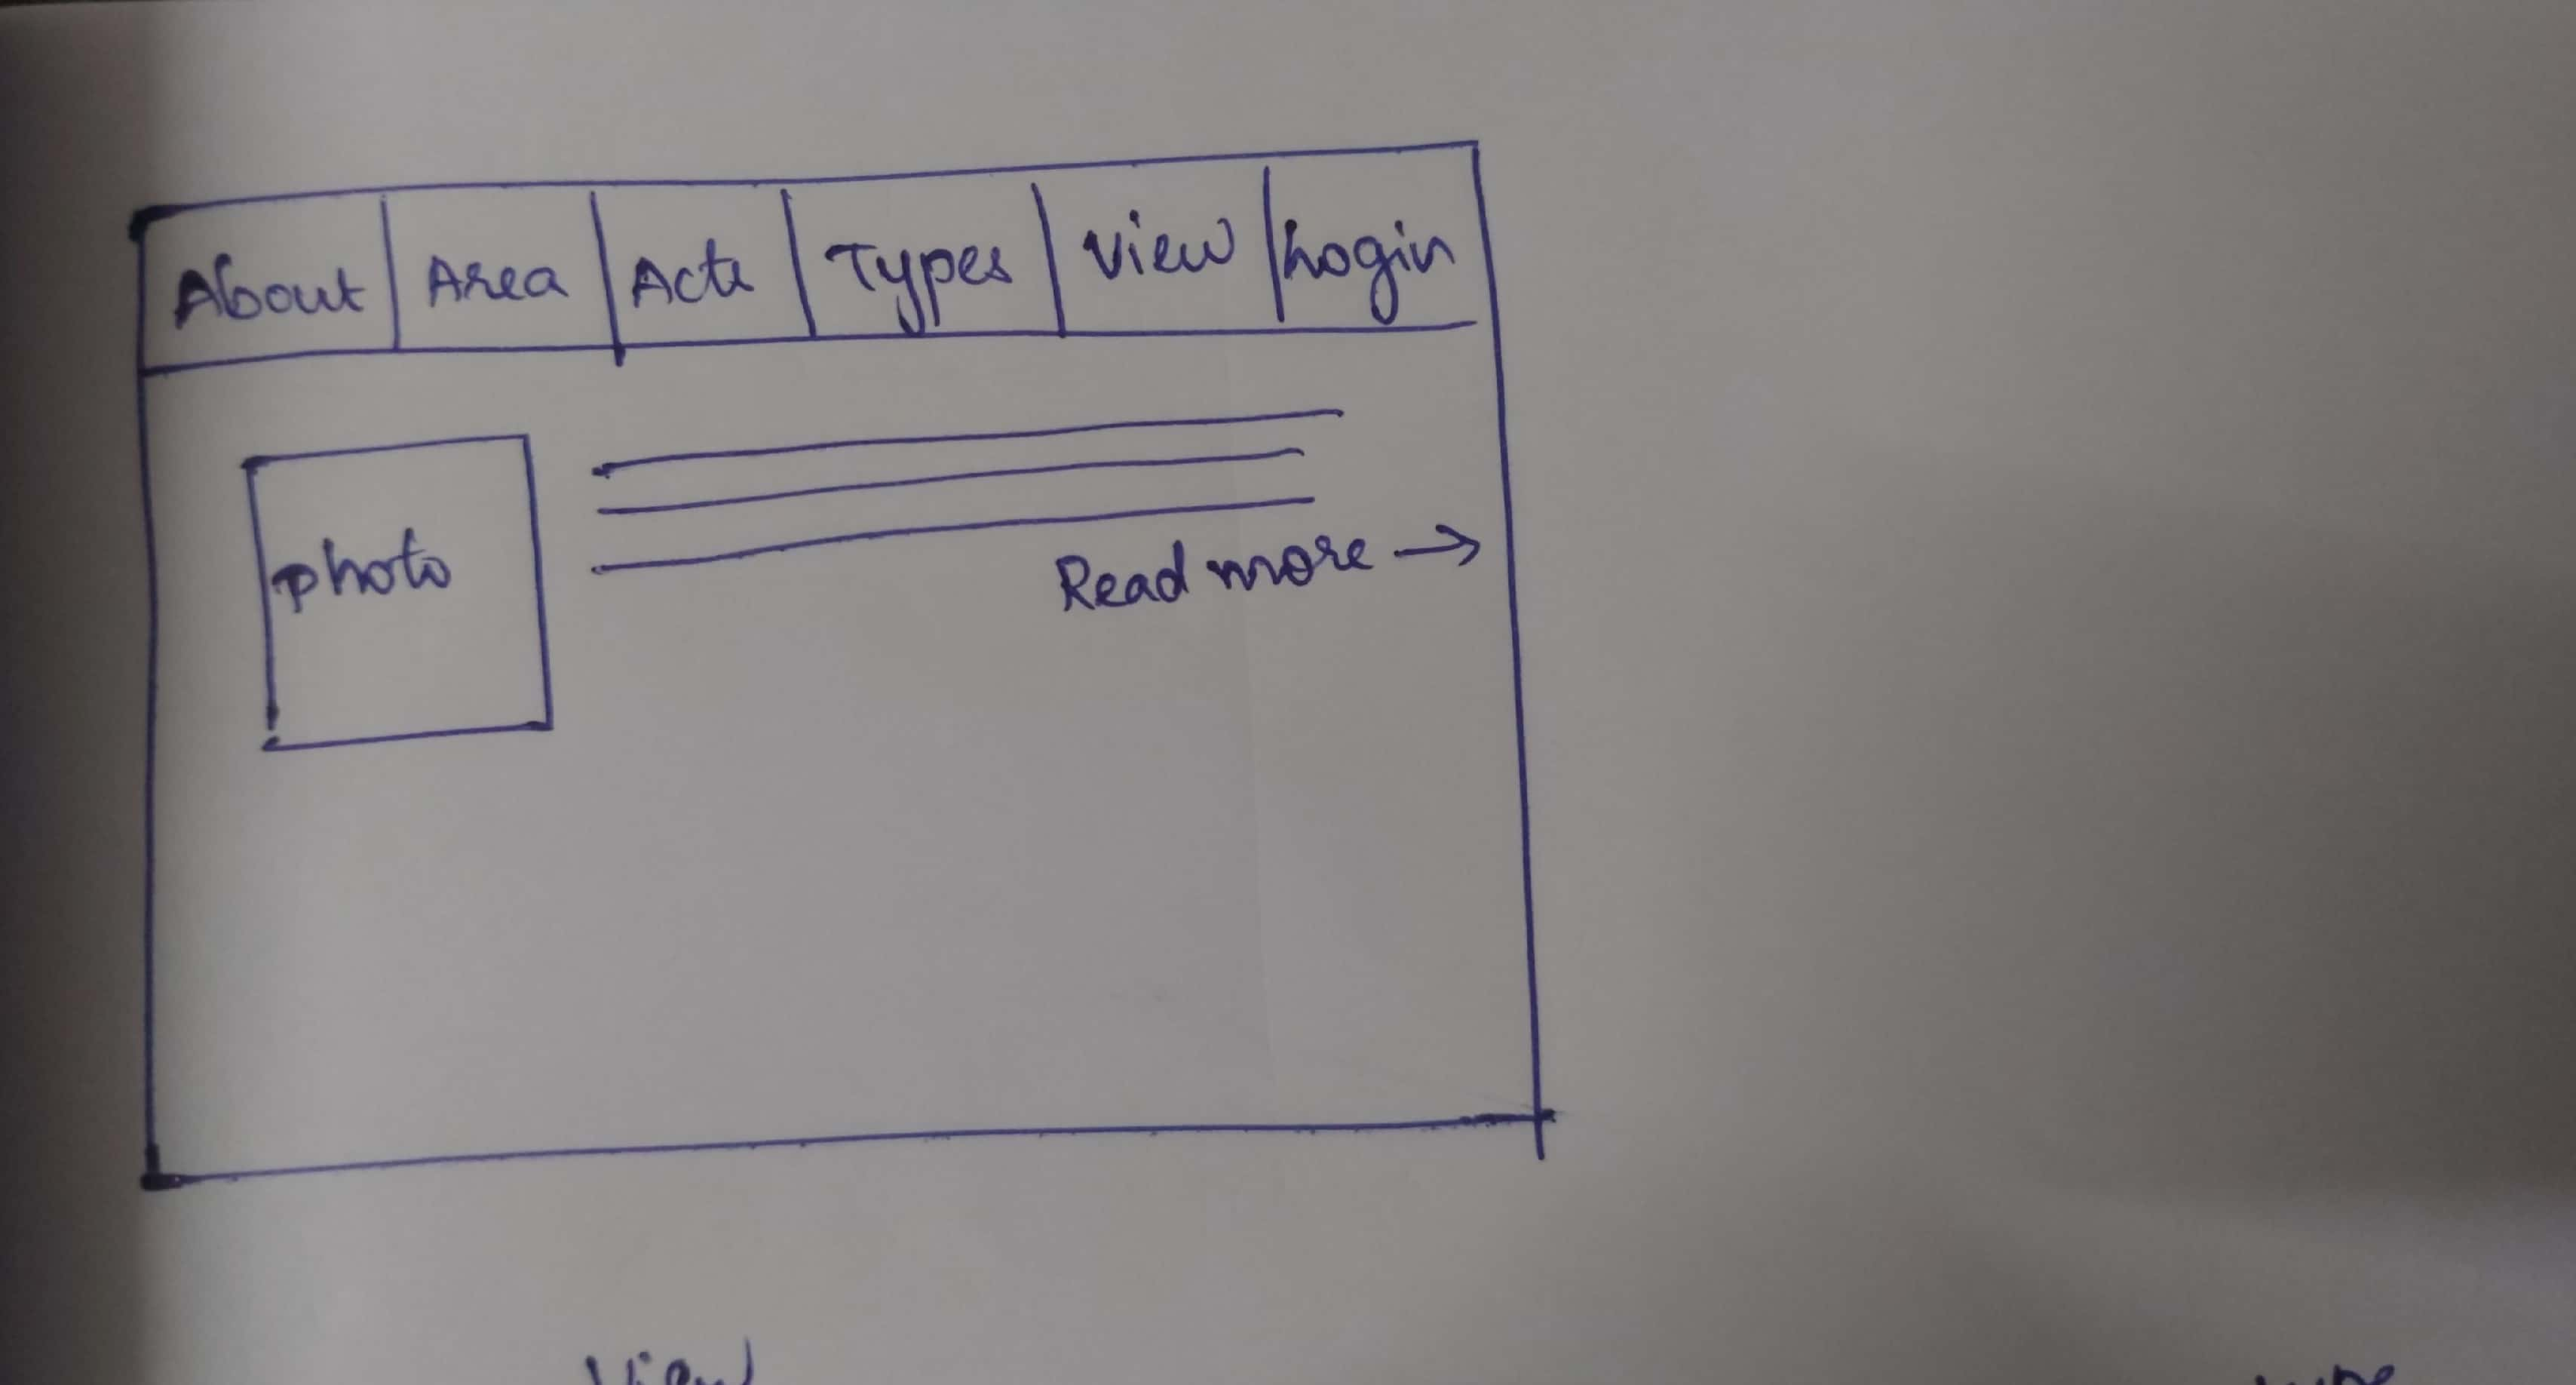 About Area Acts Types View Login
photo
Read more →
View